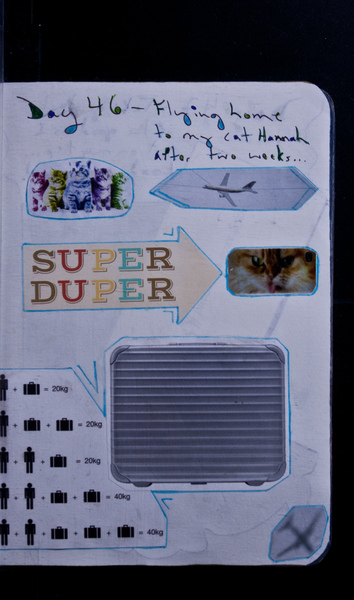 Day 46 - Flying home
to my cat Hannah
after two weeks...
SUPER
DUPER
+ = 20kg
+ + = 20kg
+ + = 20kg
+ + + = 40kg
+ + + + = 40kg